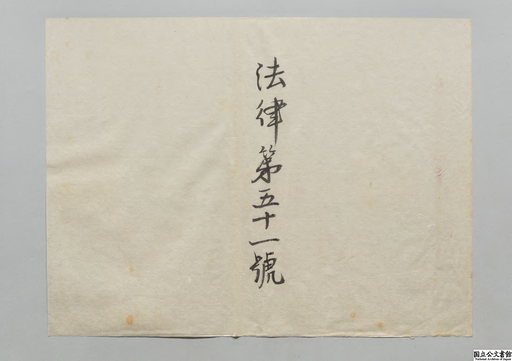 法律第五十一號
国立公文書館
National Archives of Japan